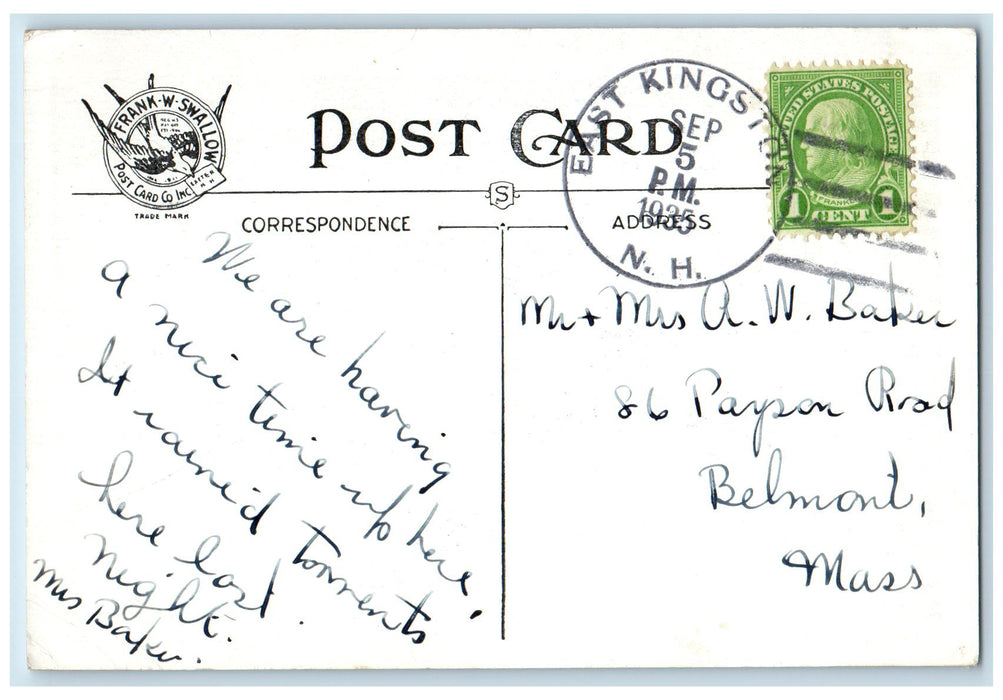 FRANK·W·SWALLOW
POST CARD CO INC
EXETER
N.H.
TRADE MARK
POST CARD
S
CORRESPONDENCE
ADDRESS
EAST KINGSTON
SEP
5
P.M.
1935
N. H.
UNITED STATES POSTAGE
FRANKLIN
1 CENT 1
We are having
a nice time up here.
It raine'd torrents
here last
night.
Mrs Baker.
Mr + Mrs A. W. Baker
86 Payson Road
Belmont,
Mass